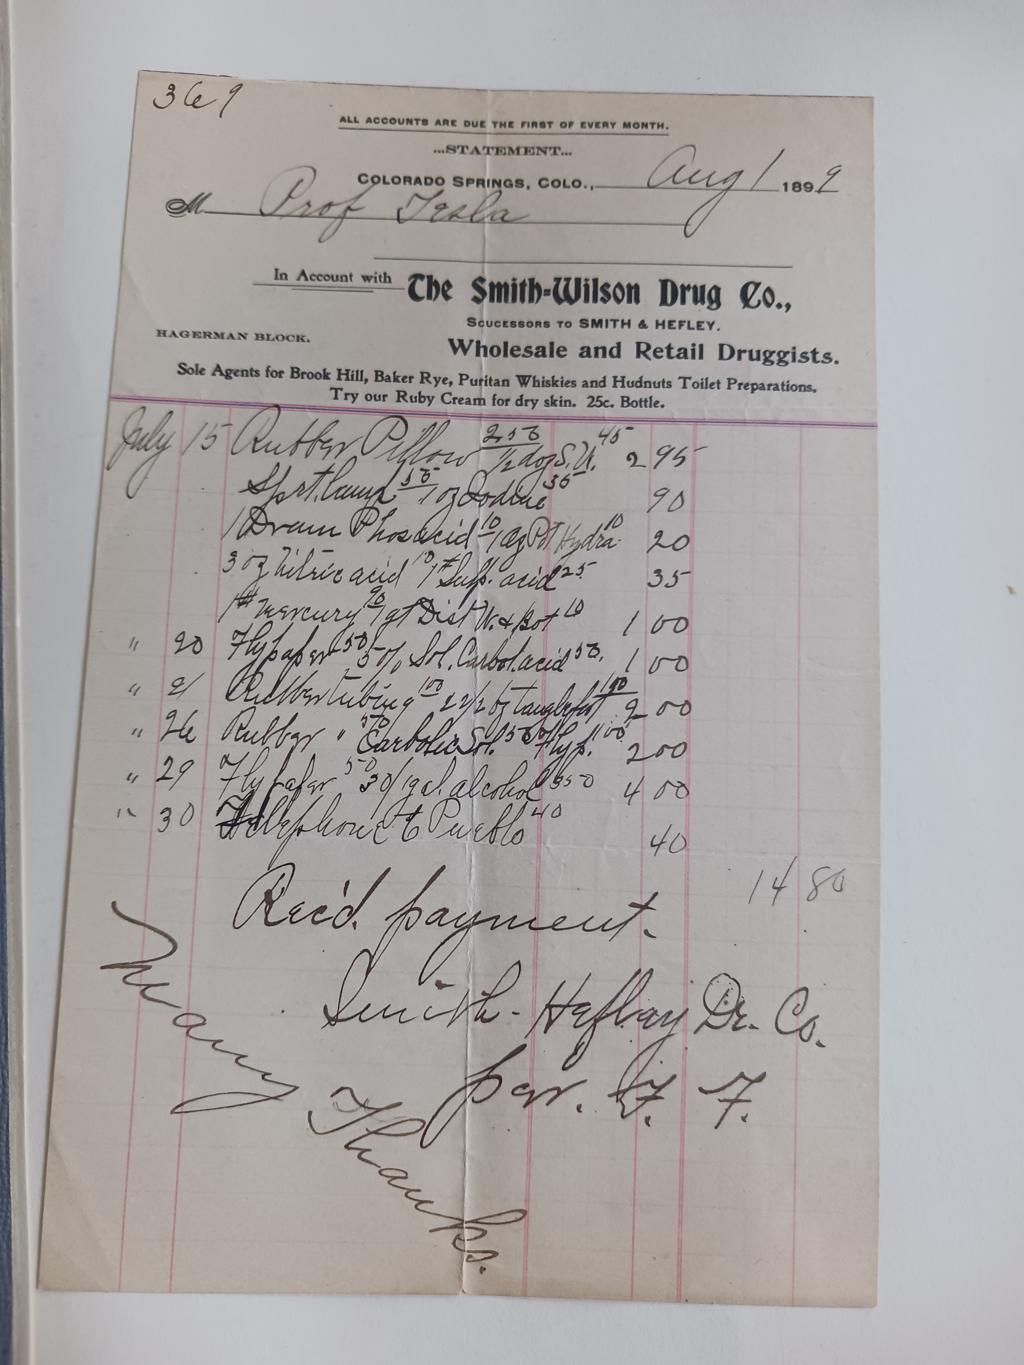 369
ALL ACCOUNTS ARE DUE THE FIRST OF EVERY MONTH.
...STATEMENT...
COLORADO SPRINGS, COLO., Aug 1 1899
M Prof Tesla
In Account with The Smith-Wilson Drug Co.,
SCUCESSORS TO SMITH & HEFLEY.
HAGERMAN BLOCK.
Wholesale and Retail Druggists.
Sole Agents for Brook Hill, Baker Rye, Puritan Whiskies and Hudnuts Toilet Preparations.
Try our Ruby Cream for dry skin. 25c. Bottle.
July 15 Rubber Pillow 250 1/2 doz S.U. 45 2 95
Sprt. lamp 55 1 oz Iodine 35 90
1 Dram Phos acid 10 1 oz Pot Hydra 10 20
3 oz Nitric acid 10 1# Sulf. acid 25 35
1# Mercury 90 1 qt Dist W. & Bot 10 1 00
" 20 Flypaper 50 5% Sol. Carbol. acid 50. 1 00
" 21 Rubber tubing 100 2 1/2 tanglefoot 100 2 00
" 26 Rubber " 50 Carbolic Sol. 50 Flyp. 100 2 00
" 29 Fly paper 50 1 gal. alcohol 350 4 00
" 30 Telephone to Pueblo 40 40
14 80
Rec'd. payment.
Smith-Hefley Dr. Co.
per. F. F.
Many Thanks.